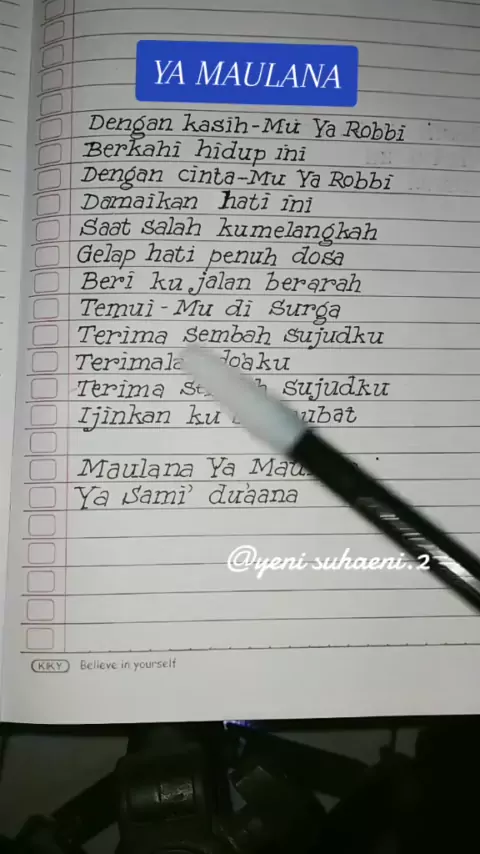 YA MAULANA
Dengan kasih-Mu Ya Robbi
Berkahi hidup ini
Dengan cinta-Mu Ya Robbi
Damaikan hati ini
Saat salah kumelangkah
Gelap hati penuh dosa
Beri ku jalan berarah
Temui-Mu di Surga
Terima sembah sujudku
do'aku
Terima sujudku
Ijinkan ku
Maulana Ya
Ya Sami' du'aana
@yeni suhaeni.2
KKY Believe in yourself